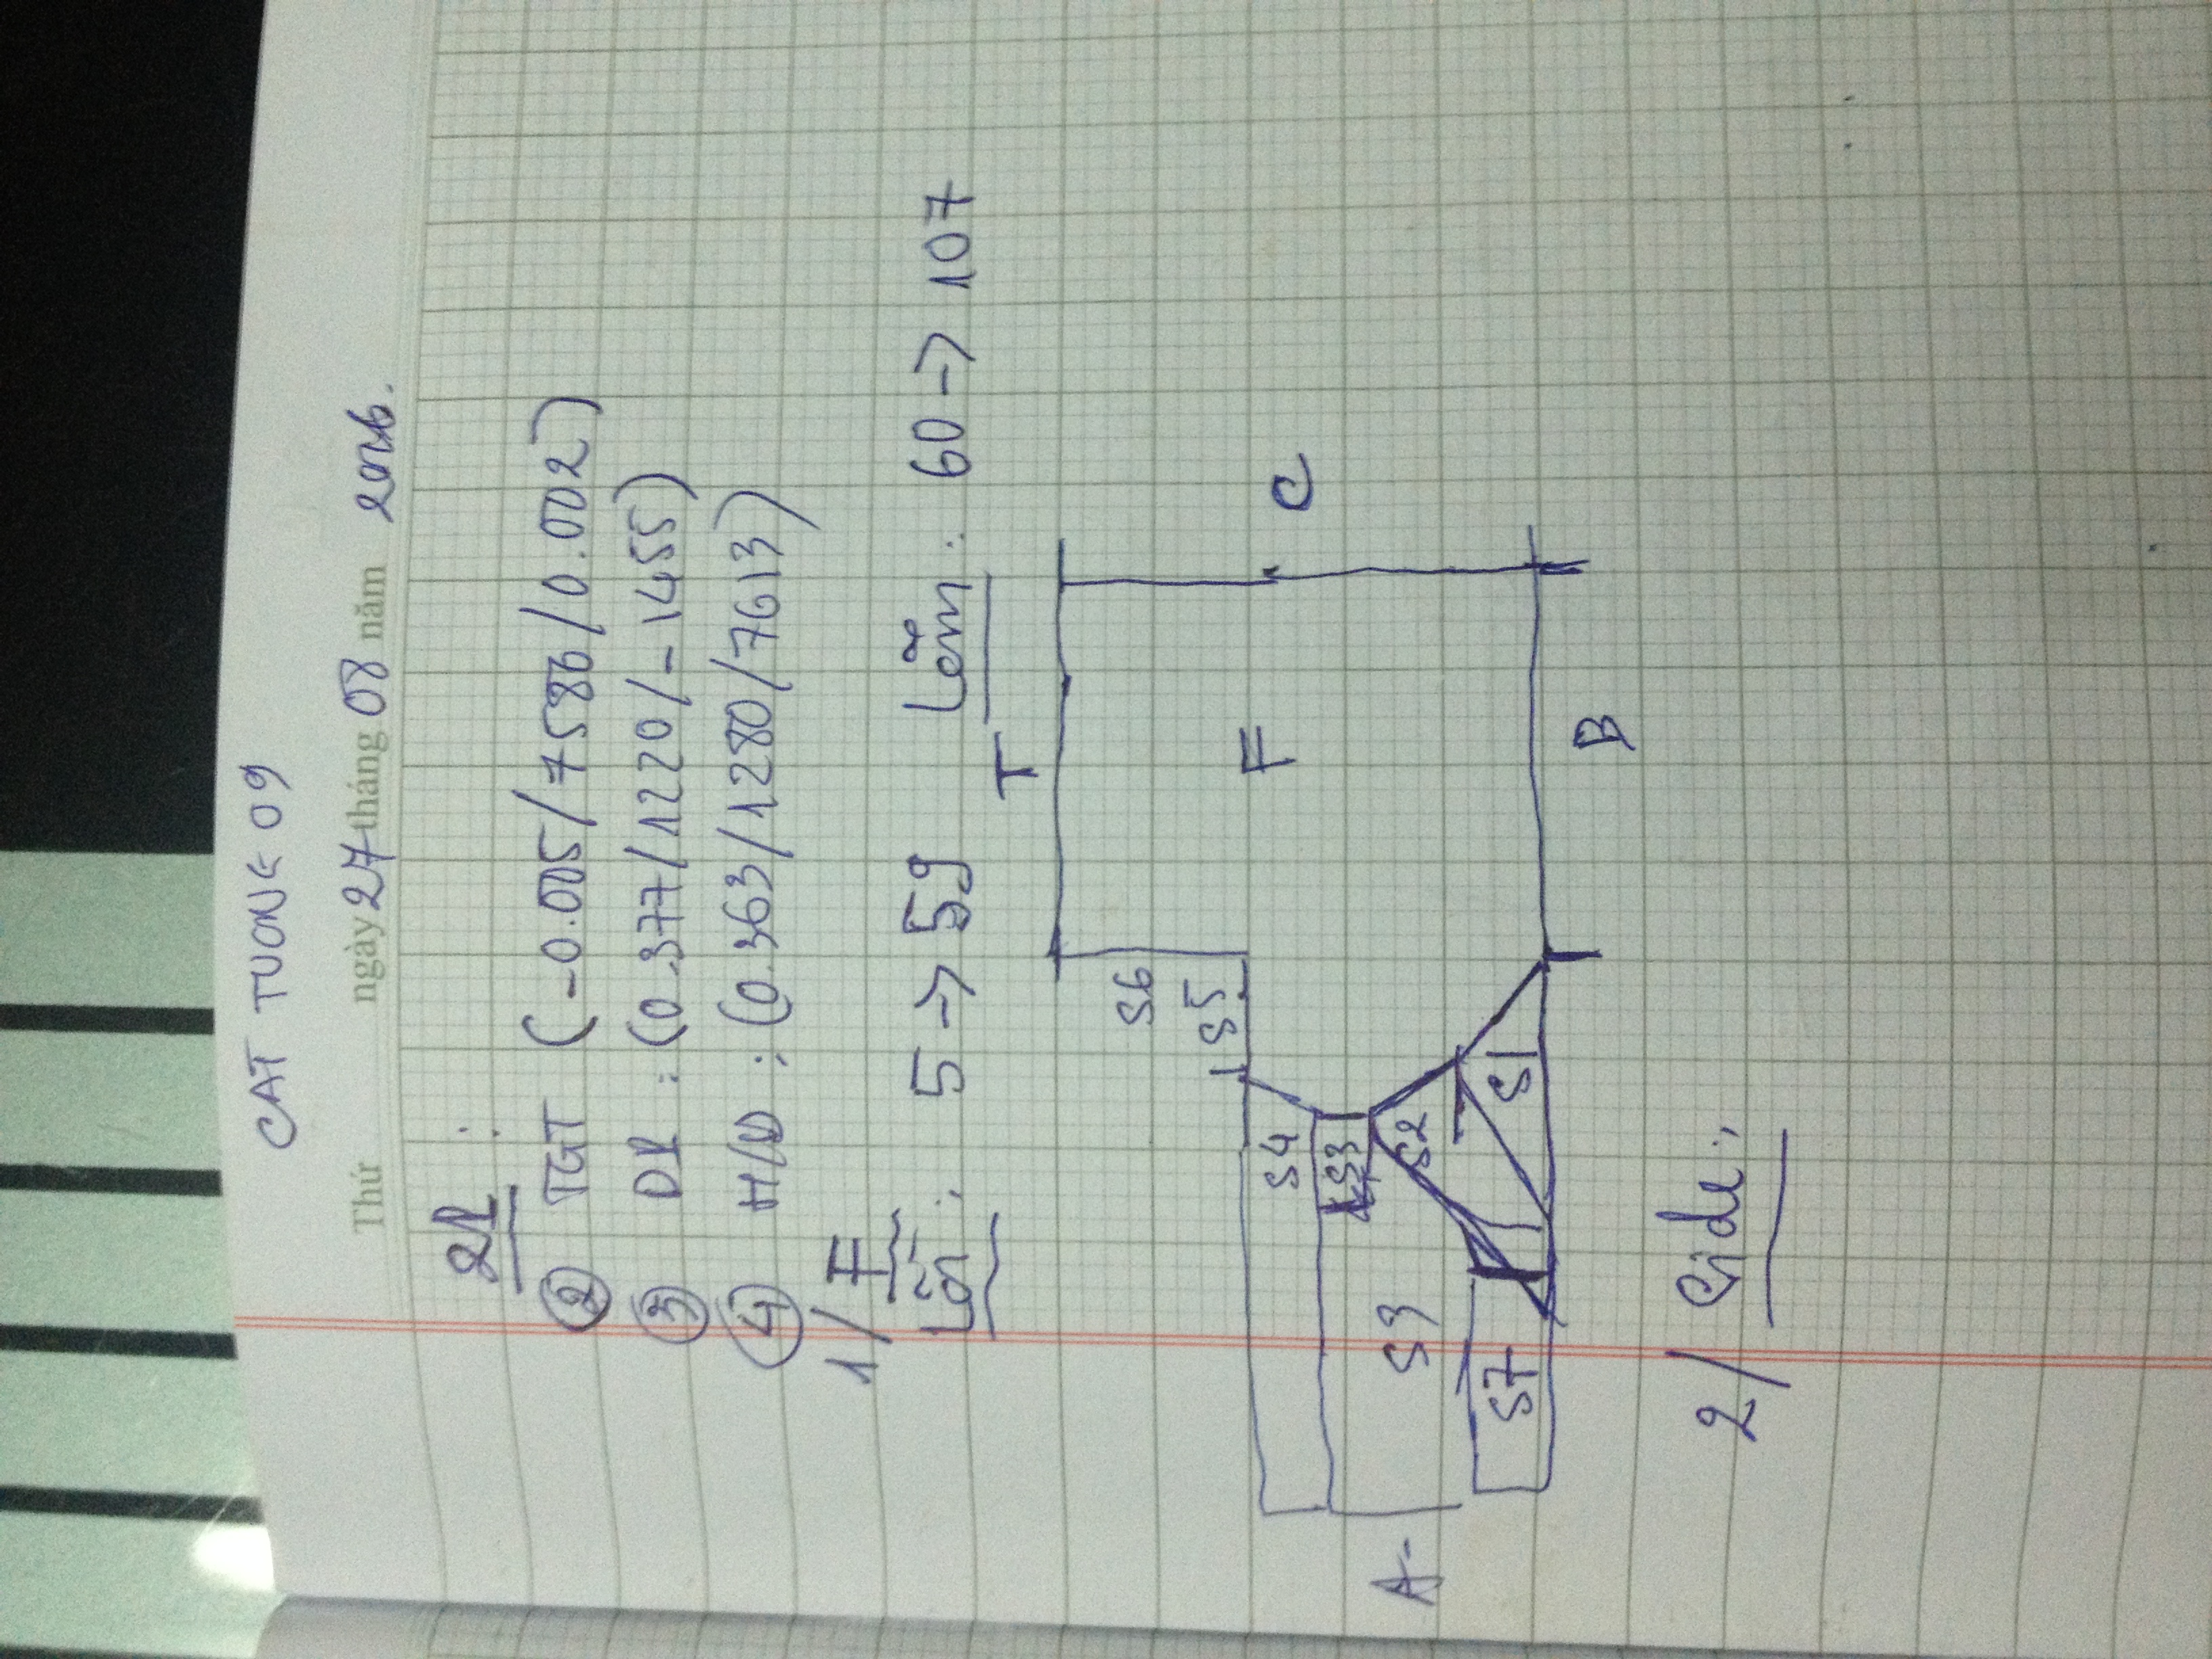 CAT TUONG 09
Thứ ngày 27 tháng 08 năm 2016.
21 :
② TGT (-0.005/7586/0.002)
③ D1 : (0.377/1220/-1455)
④ H/D : (0.363/1280/7613)
1/ F
Lồi : 5 -> 59 Lõm : 60 -> 107
T
S6
S5
S4 F C
S3
A- S9 S2
S7 S1
B
2/ Side :